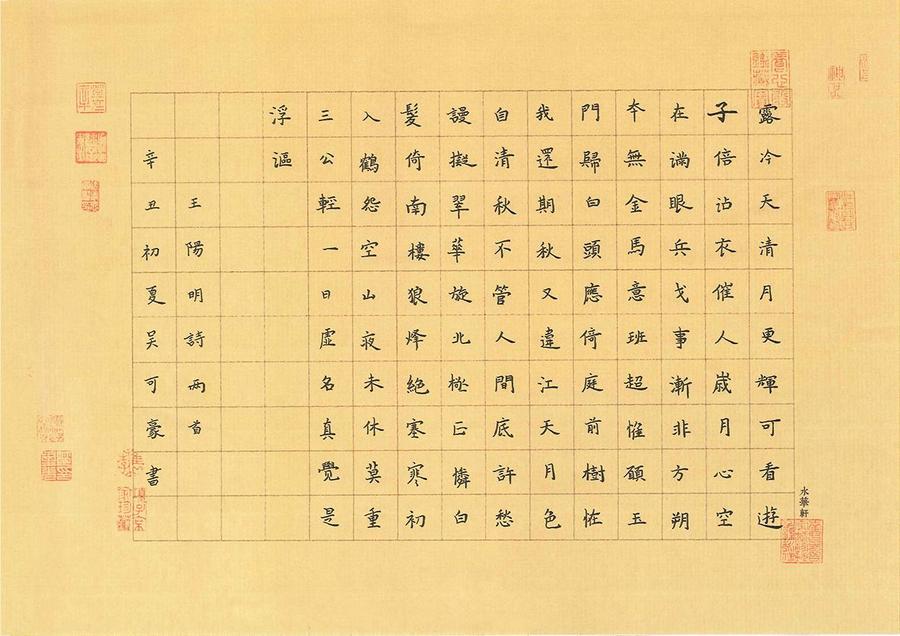 水華軒
露冷天清月更輝可看遊
子倍沾衣催人歲月心空
在滿眼兵戈事漸非方朔
本無金馬意班超惟願玉
門歸白頭應倚庭前樹怪
我還期秋又違江天月色
自清秋不管人間底許愁
謾擬翠華旋北極正憐白
髮倚南樓狼烽絕塞寒初
入鶴怨空山夜未休莫重
三公輕一日虛名真覺是
浮漚
王陽明詩兩首
辛丑初夏吳可豪書